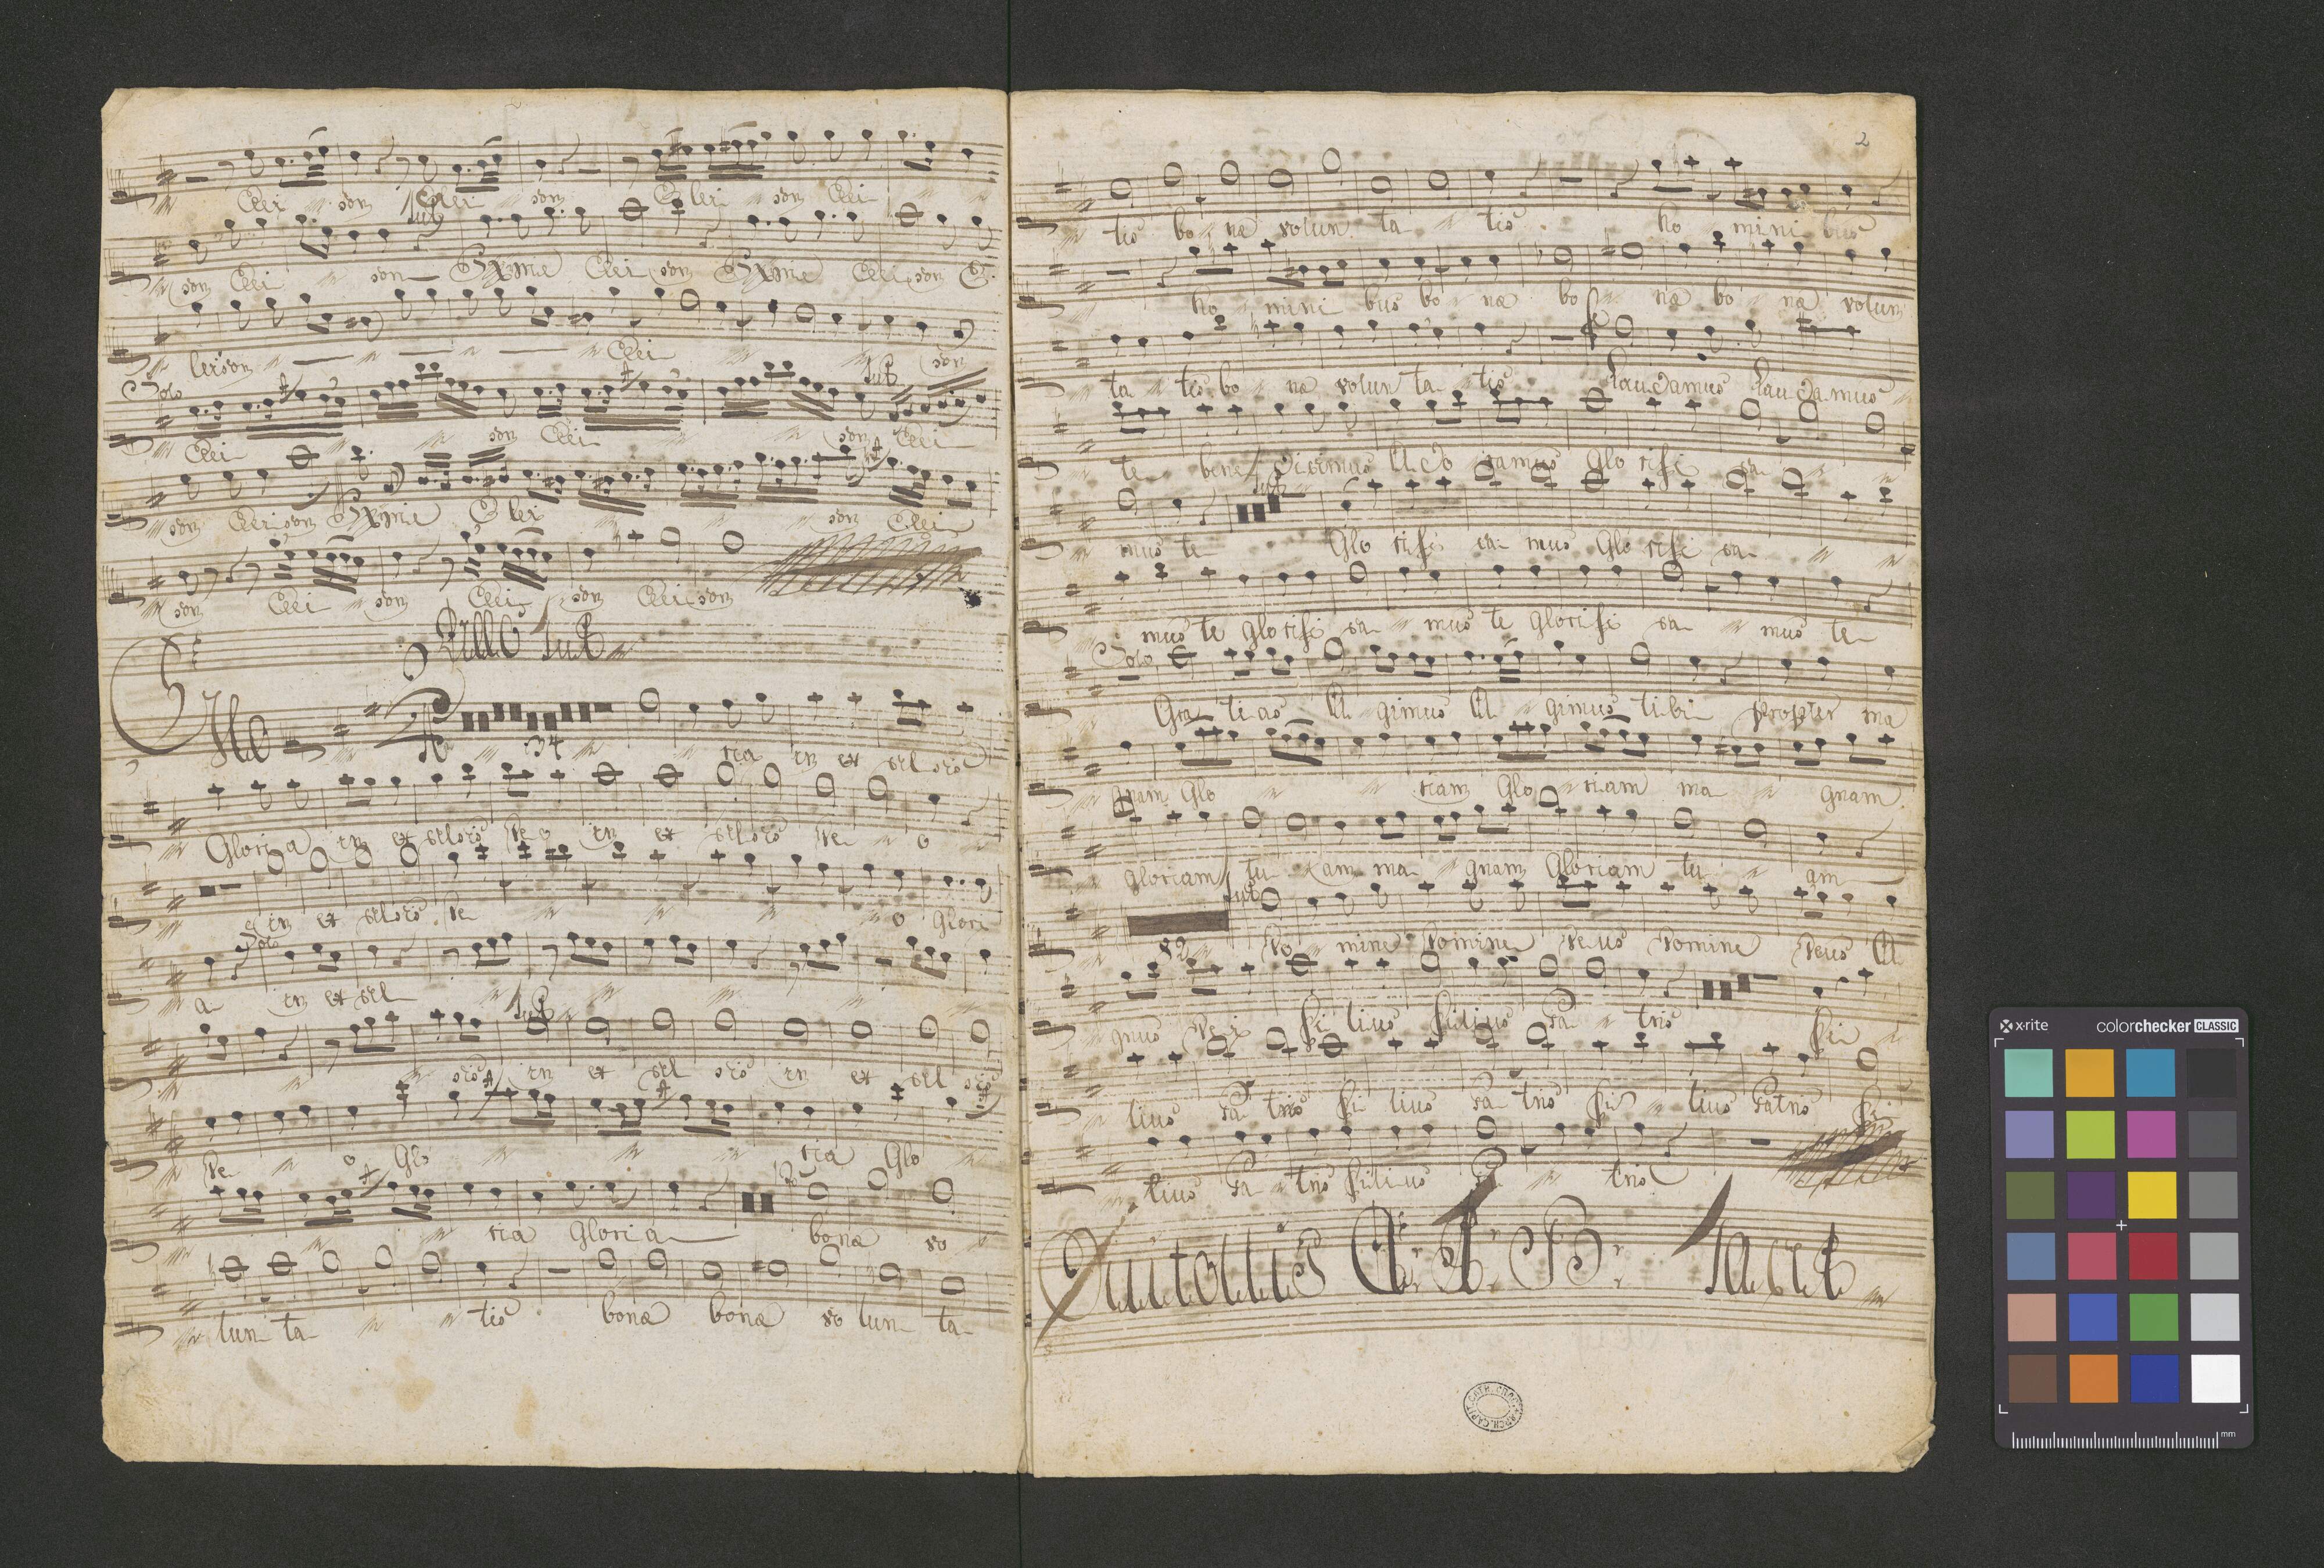 Elei son Elei son E lei son Elei
Tutti
son Elei son Xρiste Elei son Xρiste Elei son E
leison Elei son
Solo Tutti
Elei son Elei son Elei
son Eleison Xρiste E lei son Elei
son Elei son Elei son Elei son
Tutti
Glo 34 ria in ex cel sis
Gloria in ex celsis De o in ex celsis De o
in ex celsis De o Glori
Solo
a in ex cel
Tutti
sis in ex cel sis in ex cel sis
De o Glo ria Glo
ria Gloria bonæ vo
lun ta tis bonæ bonæ vo lun ta
2
tis bo næ volun ta tis ho mini bus
ho mini bus bo næ bo næ bo næ volun
ta tis bo næ volun ta tis Laudamus Laudamus
te bene dicimus Ado ramus Glo rifi ca
mus te Glo rifi ca mus Glo rifi ca
mus te glorifi ca mus te glorifi ca mus te
Solo
Gra tias A gimus A gimus tibi propter ma
gnam Glo riam Glo riam ma gnam
gloriam tu am ma gnam Gloriam tu am
Tutti
82 Do mine Domine Deus Domine Deus A
gnus De i Fi lius Filius Pa tris Fi
lius Pa tris Fi lius Pa tris Fi lius Patris Fi
lius Pa tris Filius Pa tris
Qui tollis A: T: B: Tacet
x-rite colorchecker CLASSIC
mm